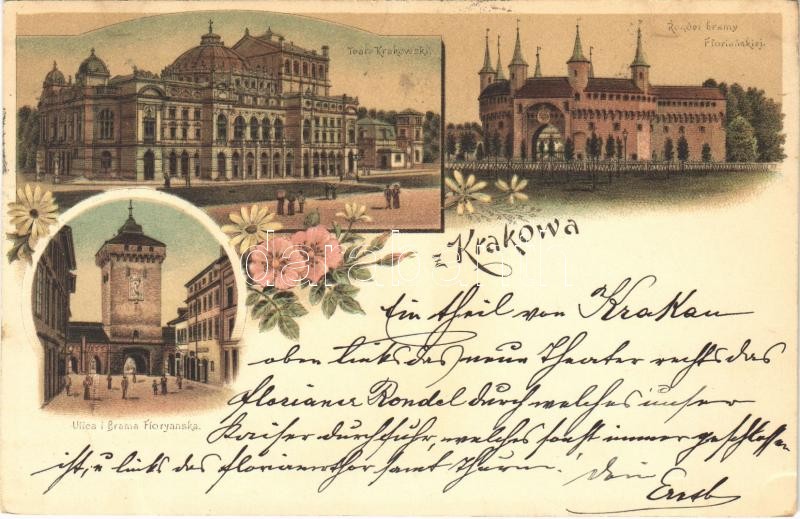 Teatr Krakowski.
Rondel bramy
Floriańskiej.
Z Krakowa
Ulica i Brama Floryańska.
Ein theil von Krakau
oben links das neue Theater rechts das
florianer Rondel durch welches unser
Kaiser durchfuhr, welches sonst immer geschlossen
ist, u links das florianerthor samt Thurm.
dein
Ernst
darabanth